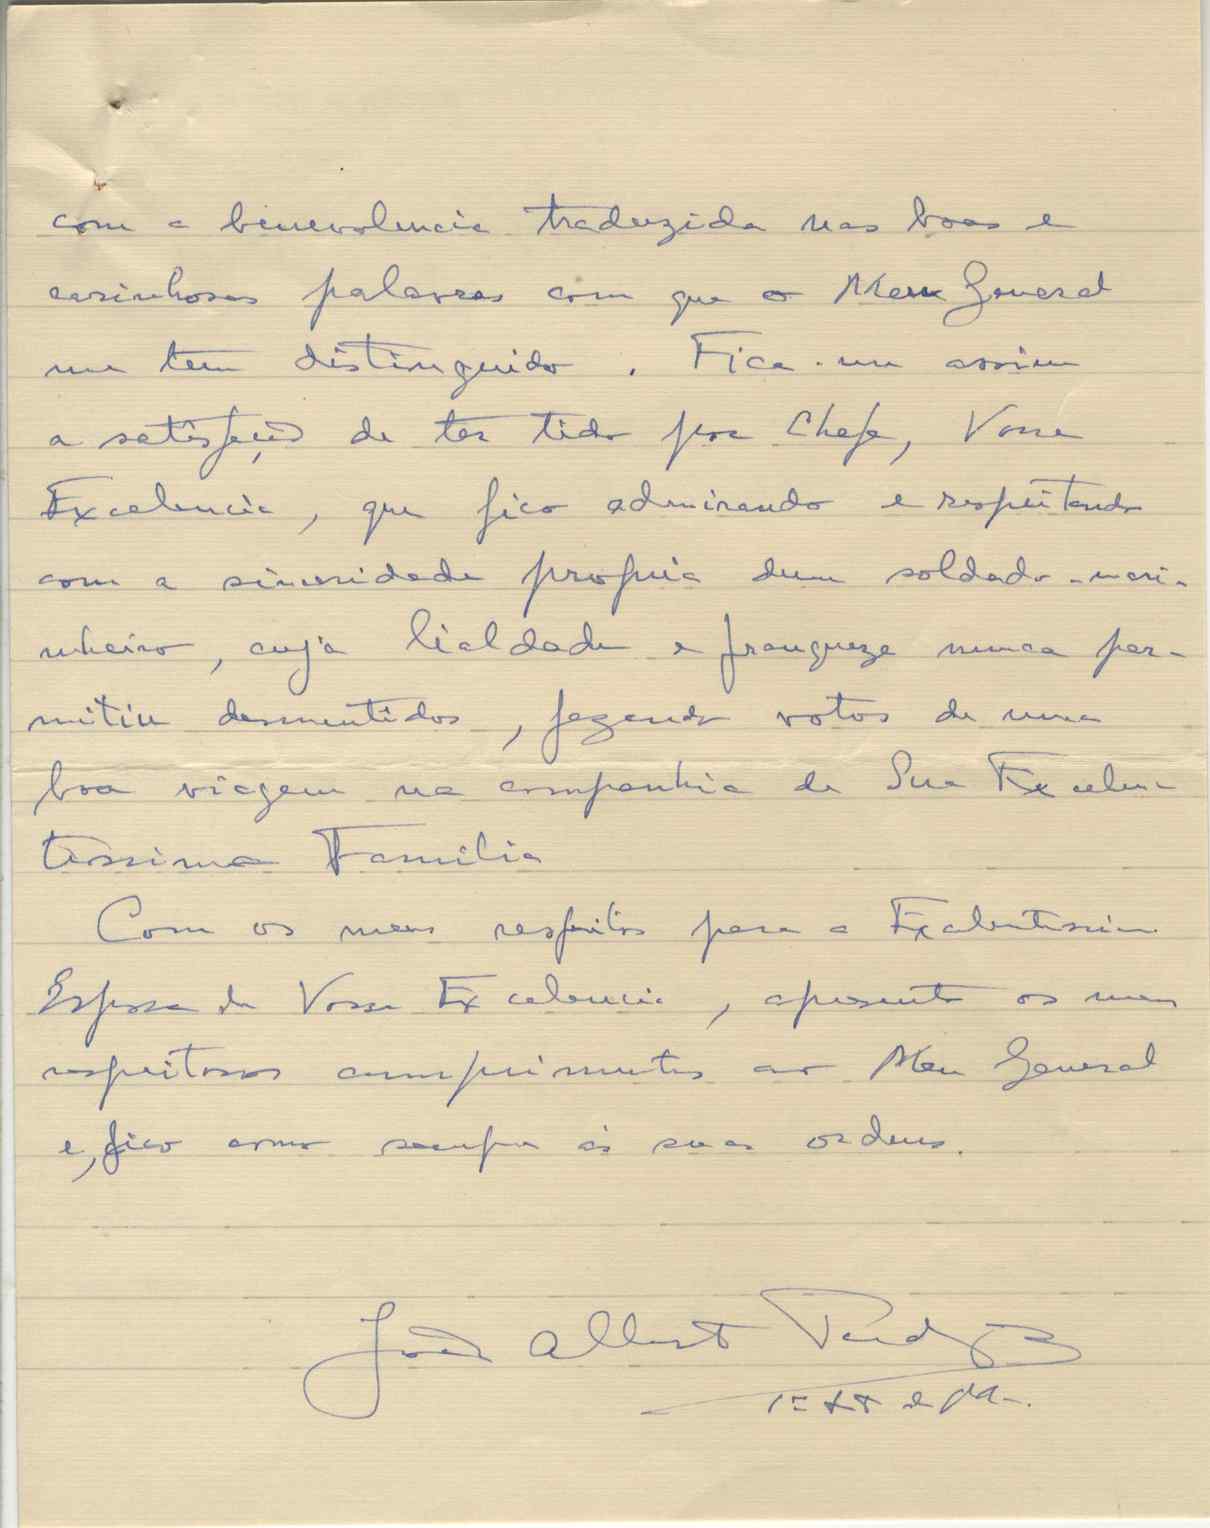 com a benevolencia traduzida nas boas e
carinhosas palavras com que o Meu General
me tem distinguido. Fica-me assim
a satisfação de ter tido por Chefe, Vossa
Excelencia, que fico admirando e respeitando
com a sinceridade propria dum soldado-mari-
nheiro, cuja lialdade e franqueza nunca per-
mitiu desmentidos, fazendo votos de uma
boa viagem na companhia de Sua Excelen-
tissima Familia
Com os meus respeitos para a Excelentissima
Esposa de Vossa Excelencia, apresento os meus
respeitosos cumprimentos ao Meu General
e, fico como sempre ás suas ordens.
João Alberto